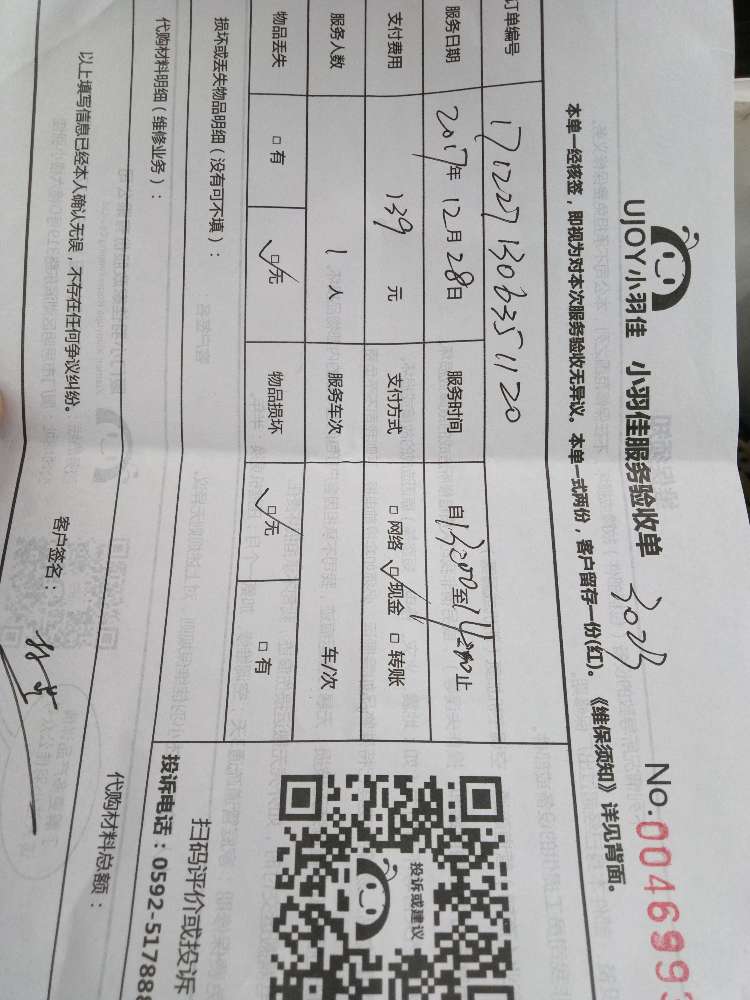 UJOY小羽佳 小羽佳服务验收单 No.004699
本单一经核签，即视为对本次服务验收无异议。本单一式两份，客户留存一份(红)。《维保须知》详见背面。
订单编号 1712271306351120
服务日期 2017年12月28日 服务时间 自13:00至14:30止
支付费用 139元 支付方式 □网络 ☑现金 □转账
服务人数 1人 服务车次 车/次
物品丢失 □有 ☑无 物品损坏 ☑无 □有
损坏或丢失物品明细（没有可不填）：
代购材料明细（维修业务）：
代购材料总额：
以上填写信息已经本人确认无误，不存在任何争议纠纷。
客户签名：
投诉或建议
扫码评价或投诉
投诉电话：0592-517888